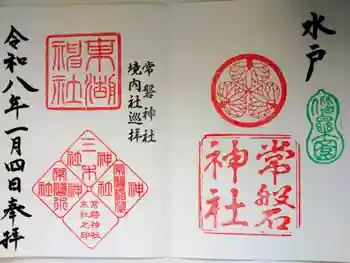 水戸
常磐
神社
常磐神社
境内社巡拝
東湖
神社
三木
神社
常磐神社
末社之印
令和八年一月四日奉拝